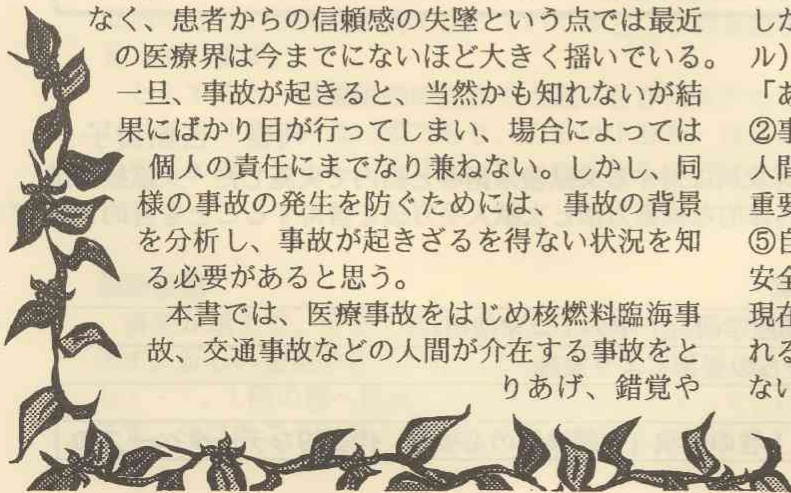 なく、患者からの信頼感の失墜という点では最近
の医療界は今までにないほど大きく揺いでいる。
一旦、事故が起きると、当然かも知れないが結
果にばかり目が行ってしまい、場合によっては
個人の責任にまでなり兼ねない。しかし、同
様の事故の発生を防ぐためには、事故の背景
を分析し、事故が起きざるを得ない状況を知
る必要があると思う。
本書では、医療事故をはじめ核燃料臨海事
故、交通事故などの人間が介在する事故をと
りあげ、錯覚や
しか
ル)
「あ
②事
人間
重要
⑤自
安全
現在
れる
ない